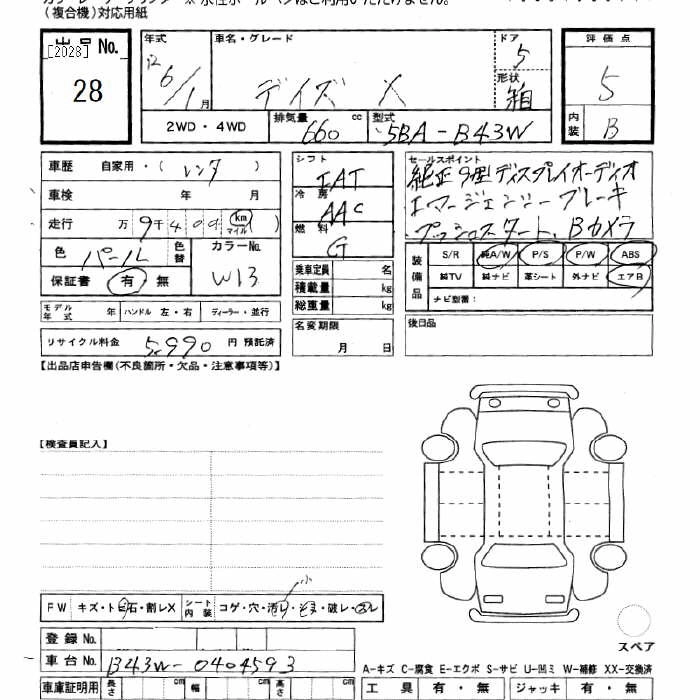 (複合機)対応用紙
出品No. 年式 車名・グレード ドア 評価点
[2028]
28
6/1月 デイズ X 5 形状 箱 5
2WD・4WD 排気量 660 cc 型式 5BA-B43W 内装 B
車歴 自家用・(レンタ) シフト IAT セールスポイント
純正9型ディスプレイオーディオ
車検 年 月 冷房 AAC エマージェンシーブレーキ
走行 万9千400 km マイル ( ) 燃料 G プッシュスタート、Bカメラ
色 パール 色替 カラーNo. W13
保証書 有・無
乗車定員 名
積載量 kg
総重量 kg
装備品 S/R 純A/W P/S P/W ABS
純TV 純ナビ 革シート 外ナビ エアB
ナビ型番:
モデル年式 年 ハンドル 左・右 ディーラー・並行
名変期限 月 日
後日品
リサイクル料金 5,990 円 預託済
【出品店申告欄(不良箇所・欠品・注意事項等)】
【検査員記入】
FW キズ・トビ石・割レX シート内装 コゲ・穴・汚レ・キズ・破レ・スレ
小
スペア
登録No.
車台No. B43W-0404593
A-キズ C-腐食 E-エクボ S-サビ U-凹ミ W-補修 XX-交換済
車庫証明用 長さ cm 幅 cm 高さ cm 工具 有・無 ジャッキ 有・無